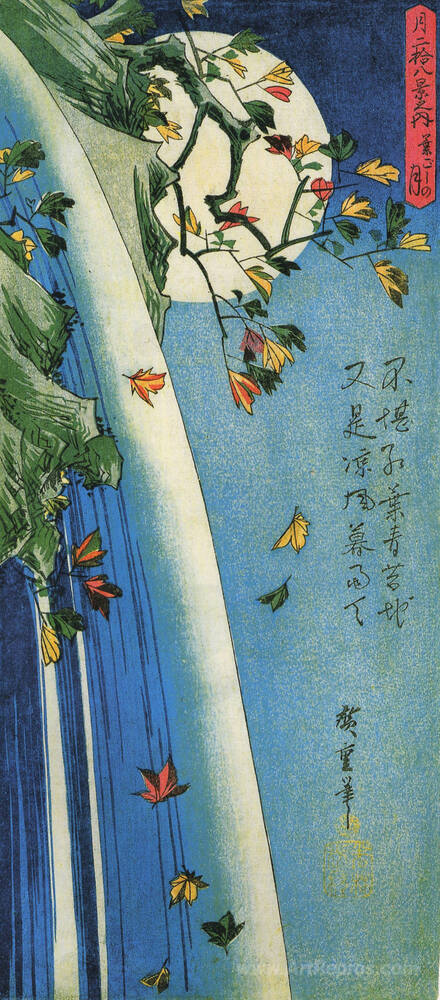 月二拾八景之内
葉ごしの
月
不堪紅葉青苔地
又是涼風暮雨天
廣重筆
www.ArtRepros.com